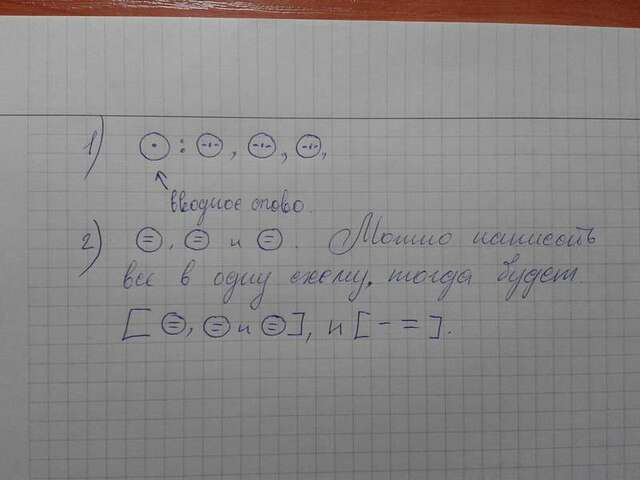 1) (•) : (-·-), (-·-), (-·-),
вводное слово.
2) (=), (=) и (=). Можно написать
все в одну схему, тогда будет
[(=), (=) и (=)], и [- =].